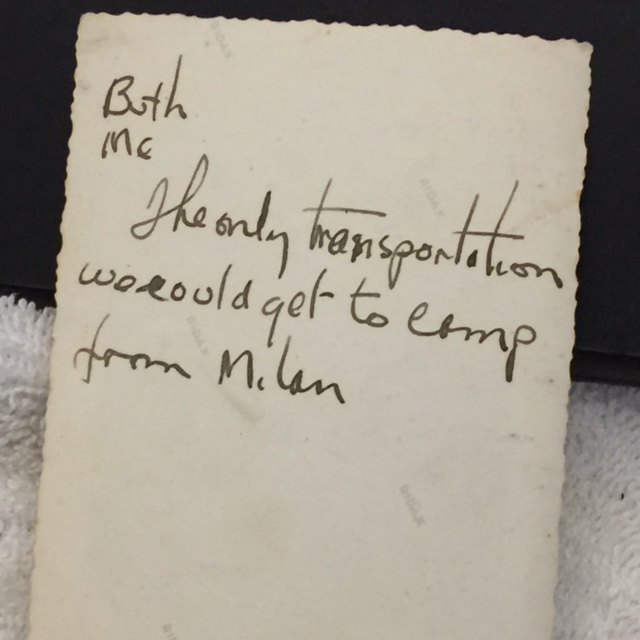 Both
Me
The only transportation
we could get to camp
from Milan